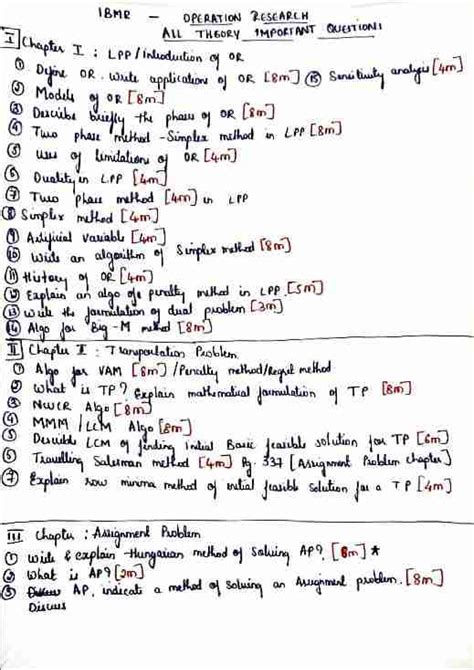 IBMR - OPERATION RESEARCH
ALL THEORY IMPORTANT QUESTIONS
I Chapter I : LPP/Introduction of OR
① Define OR. Write applications of OR [8m] ⑮ Sensitivity analysis [4m]
② Models of OR [8m]
③ Describe briefly the phases of OR [8m]
④ Two phase method - Simplex method in LPP [8m]
⑤ Uses of limitations of OR [4m]
⑥ Duality in LPP [4m]
⑦ Two phase method [4m] in LPP
⑧ Simplex method [4m]
⑨ Artificial variable [4m]
⑩ Write an algorithm of Simplex method [8m]
⑪ History of OR [4m]
⑫ Explain an algo of penalty method in LPP. [5m]
⑬ Write the formulation of dual problem [3m]
⑭ Algo for Big-M method [8m]
II Chapter II : Transportation Problem
① Algo for VAM [8m] /Penalty method/Regret method
② What is TP? Explain mathematical formulation of TP [8m]
③ NWCR Algo [8m]
④ MMM / LCM Algo [8m]
⑤ Describe LCM of finding initial Basic feasible solution for TP [6m]
⑥ Travelling Salesman method [4m] Pg. 337 [Assignment Problem Chapter]
⑦ Explain row minima method of initial feasible solution for a TP [4m]
III Chapter : Assignment Problem
① Write & explain - Hungarian method of solving AP?. [8m] *
② What is AP? [2m]
③ AP, indicate a method of solving an Assignment problem. [8m]
Discuss